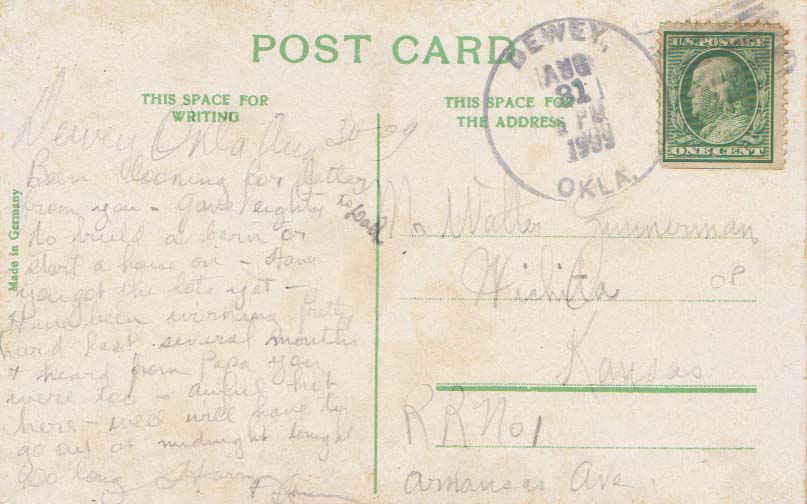 POST CARD
THIS SPACE FOR
WRITING
THIS SPACE FOR
THE ADDRESS
DEWEY,
AUG
31
1909
OKLA.
U.S. POSTAGE
ONE CENT
Made in Germany
Dewey Okla Aug 30-09
Been looking for letter
from you - Gave eighty
to Dad
to build a barn or
start a house on - Have
you got the lots yet -
Have been working pretty
hard last several months
& heard from Papa you
were too - awful hot
here - well will have to
go out at midnight tonight
So long Harry
Mr Walter Zimmerman
Wichita
OP
Kansas
RR No 1
Arkansas Ave.